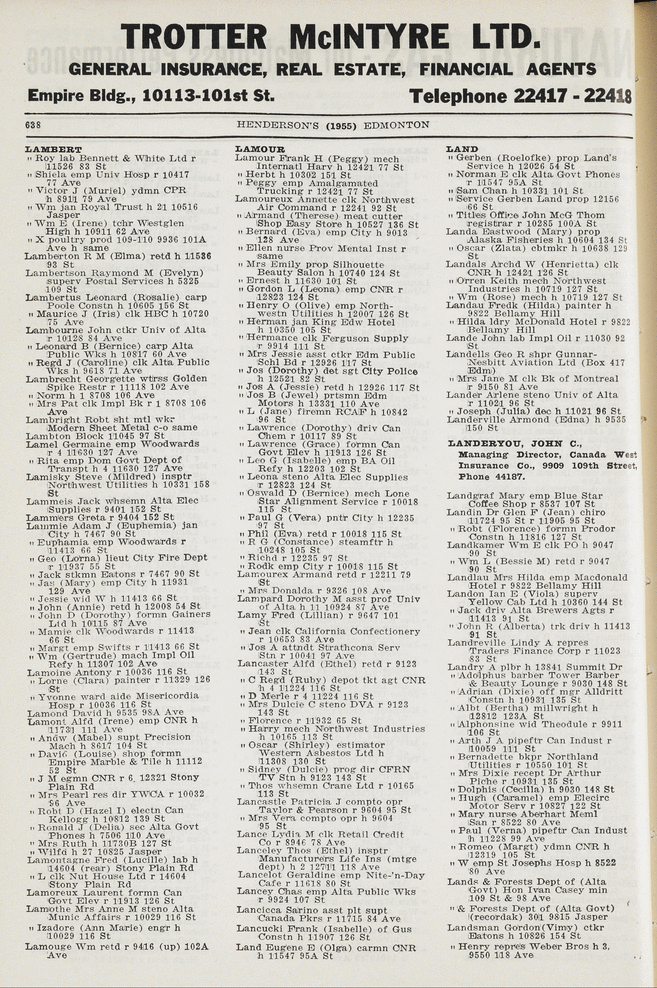 TROTTER McINTYRE LTD.
GENERAL INSURANCE, REAL ESTATE, FINANCIAL AGENTS
Empire Bldg., 10113-101st St. Telephone 22417 - 22418
638 HENDERSON'S (1955) EDMONTON
LAMBERT
" Roy lab Bennett & White Ltd r
11526 83 St
" Shiela emp Univ Hosp r 10417
77 Ave
" Victor J (Muriel) ydmn CPR
h 8911 79 Ave
" Wm jan Royal Trust h 21 10516
Jasper
" Wm E (Irene) tchr Westglen
High h 10911 62 Ave
" X poultry prod 109-110 9936 101A
Ave h same
Lamberton R M (Elma) retd h 11536
93 St
Lambertson Raymond M (Evelyn)
superv Postal Services h 5325
109 St
Lambertus Leonard (Rosalie) carp
Poole Constn h 10605 156 St
" Maurice J (Iris) clk HBC h 10720
75 Ave
Lambourne John ctkr Univ of Alta
r 10128 84 Ave
" Leonard B (Bernice) carp Alta
Public Wks h 10817 60 Ave
" Regd J (Caroline) clk Alta Public
Wks h 9618 71 Ave
Lambrecht Georgette wtrss Golden
Spike Restr r 11118 102 Ave
" Norm h 1 8708 106 Ave
" Mrs Pat clk Impl Bk r 1 8708 106
Ave
Lambright Robt sht mtl wkr
Modern Sheet Metal c-o same
Lambton Block 11045 97 St
Lamel Germaine emp Woodwards
r 4 11630 127 Ave
" Rita emp Dom Govt Dept of
Transpt h 4 11630 127 Ave
Lamisky Steve (Mildred) insptr
Northwest Utilities h 10331 158
St
Lammeis Jack whsemn Alta Elec
Supplies r 9401 152 St
Lammers Greta r 9404 152 St
Lammie Adam J (Euphemia) jan
City h 7467 90 St
" Euphemia emp Woodwards r
11413 66 St
" Geo (Lorna) lieut City Fire Dept
r 11937 55 St
" Jack stkmn Eatons r 7467 90 St
" Jas (Mary) emp City h 11931
129 Ave
" Jessie wid W h 11413 66 St
" John (Annie) retd h 12008 54 St
" John D (Dorothy) formn Gainers
Ltd h 10115 87 Ave
" Mamie clk Woodwards r 11413
66 St
" Margt emp Swifts r 11413 66 St
" Wm (Gertrude) mach Impl Oil
Refy h 11307 102 Ave
Lamoine Antony r 10036 116 St
" Lorne (Clara) painter r 11329 126
St
" Yvonne ward aide Misericordia
Hosp r 10036 116 St
Lamond David h 9535 98A Ave
Lamont Alfd (Irene) emp CNR h
11731 111 Ave
" Andw (Mabel) supt Precision
Mach h 8617 104 St
" David (Louise) shop formn
Empire Marble & Tile h 11112
52 St
" J M egmn CNR r 6 12321 Stony
Plain Rd
" Mrs Pearl res dir YWCA r 10032
96 Ave
" Robt D (Hazel I) electn Can
Kellogg h 10812 139 St
" Ronald J (Delia) sec Alta Govt
Phones h 7506 110 Ave
" Mrs Ruth h 11730B 127 St
" Wilfd h 27 10825 Jasper
Lamontagne Fred (Lucille) lab h
14604 (rear) Stony Plain Rd
" L clk Nut House Ltd r 14604
Stony Plain Rd
Lamoreux Laurent formn Can
Govt Elev r 11913 126 St
Lamothe Mrs Anne M steno Alta
Munic Affairs r 10029 116 St
" Izadore (Ann Marie) engr h
10029 116 St
Lamouge Wm retd r 9416 (up) 102A
Ave
LAMOUR
Lamour Frank H (Peggy) mech
Internatl Harv h 12421 77 St
" Herbt h 10302 151 St
" Peggy emp Amalgamated
Trucking r 12421 77 St
Lamoureux Annette clk Northwest
Air Command r 12241 92 St
" Armand (Therese) meat cutter
Shop Easy Store h 10527 136 St
" Bernard (Eva) emp City h 9013
128 Ave
" Ellen nurse Prov Mental Inst r
same
" Mrs Emily prop Silhouette
Beauty Salon h 10740 124 St
" Ernest h 11630 101 St
" Gordon L (Leona) emp CNR r
12823 124 St
" Henry O (Olive) emp North-
westn Utilities h 12007 126 St
" Herman jan King Edw Hotel
h 10350 105 St
" Hermance clk Ferguson Supply
r 9914 111 St
" Mrs Jessie asst ctkr Edm Public
Schl Bd r 12926 117 St
" Jos (Dorothy) det sgt City Police
h 12521 82 St
" Jos A (Jessie) retd h 12926 117 St
" Jos B (Jewel) prtsmn Edm
Motors h 13331 110 Ave
" L (Jane) firemn RCAF h 10842
96 St
" Lawrence (Dorothy) driv Can
Chem r 10117 89 St
" Lawrence (Grace) formn Can
Govt Elev h 11913 126 St
" Leo G (Isabelle) emp BA Oil
Refy h 12203 102 St
" Leona steno Alta Elec Supplies
r 12823 124 St
" Oswald D (Bernice) mech Lone
Star Alignment Service r 10018
115 St
" Paul G (Vera) pntr City h 12235
97 St
" Phil (Eva) retd r 10018 115 St
" R G (Constance) steamftr h
10248 105 St
" Richd r 12235 97 St
" Rodk emp City r 10018 115 St
Lamourex Armand retd r 12211 79
St
" Mrs Donalda r 9326 108 Ave
Lampard Dorothy M asst prof Univ
of Alta h 11 10924 87 Ave
Lamy Fred (Lillian) r 9647 101
St
" Jean clk California Confectionery
r 10653 83 Ave
" Jos A attndt Strathcona Serv
Stn r 10041 97 Ave
Lancaster Alfd (Ethel) retd r 9123
143 St
" C Regd (Ruby) depot tkt agt CNR
h 4 11224 116 St
" D Merle r 4 11224 116 St
" Mrs Dulcie C steno DVA r 9123
143 St
" Florence r 11932 65 St
" Harry mech Northwest Industries
h 10165 113 St
" Oscar (Shirley) estimator
Western Asbestos Ltd h
11308 130 St
" Sidney (Dulcie) prog dir CFRN
TV Stn h 9123 143 St
" Thos whsemn Crane Ltd r 10165
113 St
Lancastle Patricia J compto opr
Taylor & Pearson r 9604 95 St
" Mrs Vera compto opr h 9604
95 St
Lance Lydia M clk Retail Credit
Co r 8946 78 Ave
Lanceley Thos (Ethel) insptr
Manufacturers Life Ins (mtge
dept) h 2 12711 118 Ave
Lancelot Geraldine emp Nite-'n-Day
Cafe r 11618 80 St
Lancey Chas emp Alta Public Wks
r 9924 107 St
Lancicca Sarino asst plt supt
Canada Pkrs r 11715 84 Ave
Lancucki Frank (Isabelle) of Gus
Constn h 11907 126 St
Land Eugene E (Olga) carmn CNR
h 11547 95A St
LAND
" Gerben (Roelofke) prop Land's
Service h 12026 54 St
" Norman E clk Alta Govt Phones
r 11547 95A St
" Sam Chan h 10331 101 St
" Service Gerben Land prop 12156
66 St
" Titles Office John McG Thom
registrar r 10285 100A St
Landa Eastwood (Mary) prop
Alaska Fisheries h 10604 134 St
" Oscar (Zlata) cbtmkr h 10638 129
St
Landals Archd W (Henrietta) clk
CNR h 12421 126 St
" Orren Keith mech Northwest
Industries h 10719 127 St
" Wm (Rose) mech h 10719 127 St
Landau Fredk (Hilda) painter h
9822 Bellamy Hill
" Hilda ldry McDonald Hotel r 9822
Bellamy Hill
Lande John lab Impl Oil r 11030 92
St
Landells Geo R shpr Gunnar-
Nesbitt Aviation Ltd (Box 417
Edm)
" Mrs Jane M clk Bk of Montreal
r 9150 81 Ave
Lander Arlene steno Univ of Alta
r 11021 96 St
" Joseph (Julia) dec h 11021 96 St
Landerville Armond (Edna) h 9535
150 St
LANDERYOU, JOHN C.,
Managing Director, Canada West
Insurance Co., 9909 109th Street,
Phone 44187.
Landgraf Mary emp Blue Star
Coffee Shop r 8537 107 St
Landin Dr Glen F (Jean) chiro
11724 95 St r 11905 95 St
" Robt (Florence) formn Prodor
Constn h 11816 127 St
Landkamer Wm E clk PO h 9047
90 St
" Wm L (Bessie M) retd r 9047
90 St
Landlau Mrs Hilda emp Macdonald
Hotel r 9822 Bellamy Hill
Landon Ian E (Viola) superv
Yellow Cab Ltd h 10360 144 St
" Jack driv Alta Brewers Agts r
11413 91 St
" John R (Alberta) trk driv h 11413
91 St
Landreville Lindy A repres
Traders Finance Corp r 11023
83 St
Landry A plbr h 13841 Summit Dr
" Adolphus barber Tower Barber
& Beauty Lounge r 9030 148 St
" Adrian (Dixie) off mgr Alldritt
Constn h 10931 135 St
" Albt (Bertha) millwright h
12812 123A St
" Alphonsine wid Theodule r 9911
106 St
" Arth J A pipeftr Can Indust r
10059 111 St
" Bernadette bkpr Northland
Utilities r 10550 101 St
" Mrs Dixie recept Dr Arthur
Piche r 10931 135 St
" Dolphis (Cecilia) h 9030 148 St
" Hugh (Caramel) emp Elecirc
Motor Serv r 10827 122 St
" Mary nurse Aberhart Meml
San r 8522 80 Ave
" Paul (Verna) pipeftr Can Indust
h 11228 99 Ave
" Romeo (Margt) ydmn CNR h
12319 105 St
" W emp St Josephs Hosp h 8522
80 Ave
Lands & Forests Dept of (Alta
Govt) Hon Ivan Casey min
109 St & 98 Ave
" & Forests Dept of (Alta Govt)
(recordak) 301 9815 Jasper
Landsman Gordon(Vimy) ctkr
Eatons h 10826 154 St
" Henry repres Weber Bros h 3,
9550 118 Ave